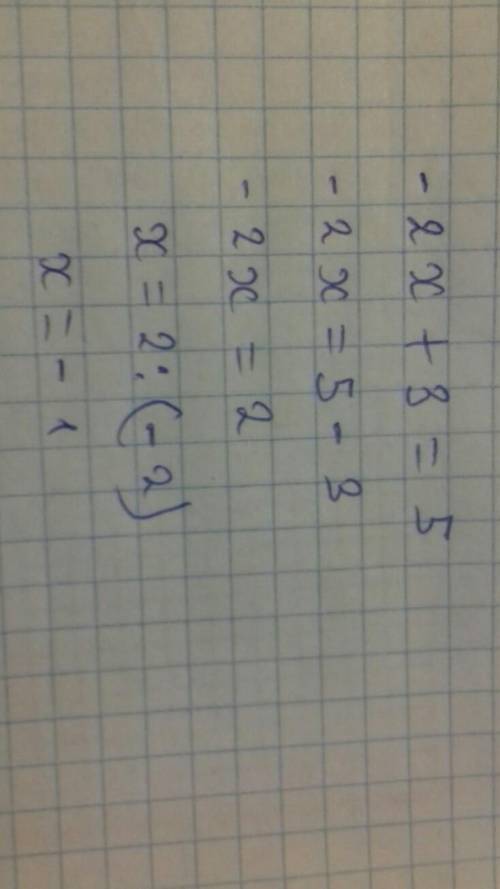 - 2x + 3 = 5
- 2x = 5 - 3
- 2x = 2
x = 2 : (-2)
x = - 1